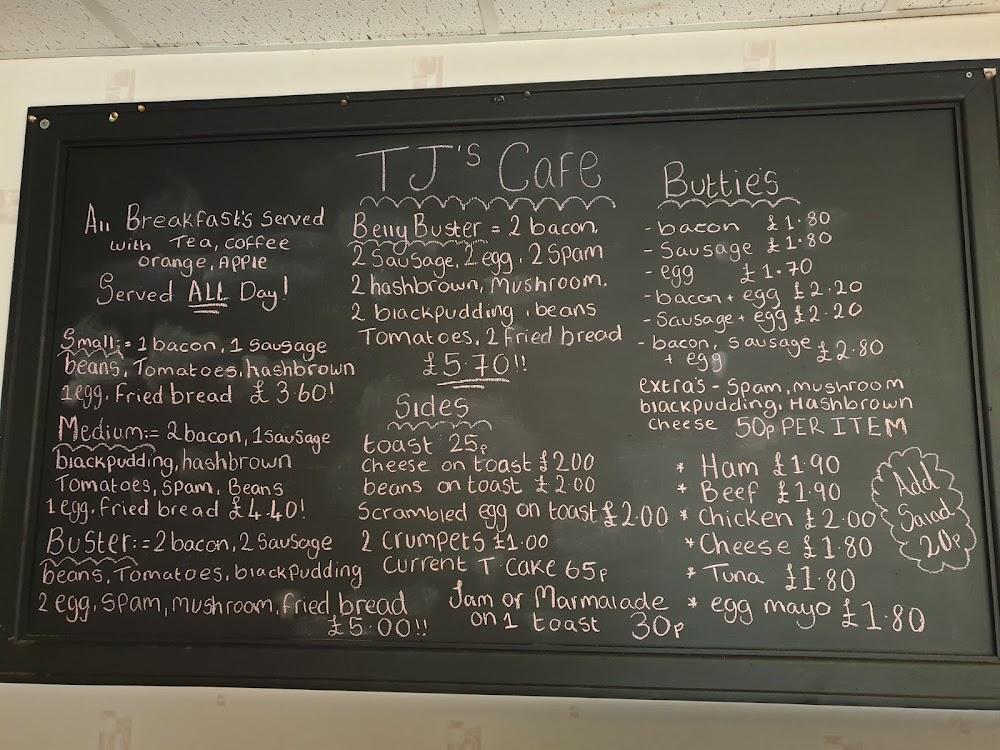 TJ's Cafe
All Breakfast's Served
with Tea, coffee
orange, APPle
Served ALL Day!
Small:= 1 bacon, 1 Sausage
beans, Tomatoes, hashbrown
1 egg. Fried bread £3.60!
Medium:= 2 bacon, 1 Sausage
blackpudding, hashbrown
Tomatoes, Spam, Beans
1 egg. Fried bread £4.40!
Buster:= 2 bacon, 2 Sausage
beans, Tomatoes, blackpudding
2 egg, Spam, mushroom, Fried bread
£5.00!!
Belly Buster = 2 bacon,
2 Sausage, 2 egg, 2 Spam
2 hashbrown, Mushroom.
2 blackpudding, beans
Tomatoes, 2 Fried bread
£5.70!!
Sides
toast 25p
cheese on toast £2.00
beans on toast £2.00
Scrambled egg on toast £2.00
2 crumpets £1.00
Current T. cake 65p
Jam or Marmalade
on 1 toast 30p
Buttie's
- bacon £1.80
- Sausage £1.80
- egg £1.70
- bacon + egg £2.20
- Sausage + egg £2.20
- bacon, sausage
+ egg £2.80
extra's - Spam, mushroom
blackpudding, Hashbrown
cheese 50p PER ITEM
* Ham £1.90
* Beef £1.90
* Chicken £2.00
* Cheese £1.80
* Tuna £1.80
* egg mayo £1.80
Add
Salad
20p